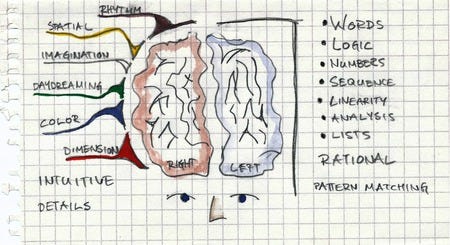 RHYTHM
SPATIAL
IMAGINATION
DAYDREAMING
COLOR
DIMENSION
INTUITIVE
DETAILS
RIGHT
LEFT
• WORDS
• LOGIC
• NUMBERS
• SEQUENCE
• LINEARITY
• ANALYSIS
• LISTS
RATIONAL
PATTERN MATCHING